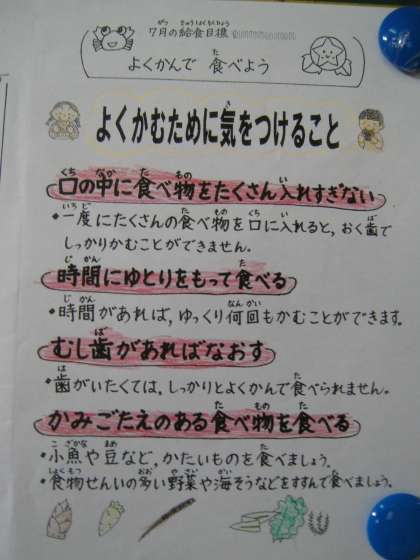 7月の給食目標
よくかんで 食べよう
よくかむために気をつけること
口の中に食べ物をたくさん入れすぎない
・一度にたくさんの食べ物を口に入れると,おく歯で
しっかりかむことができません。
時間にゆとりをもって食べる
・時間があれば,ゆっくり何回もかむことができます。
むし歯があればなおす
・歯がいたくては,しっかりとよくかんで食べられません。
かみごたえのある食べ物を食べる
・小魚や豆など,かたいものを食べましょう。
・食物せんいの多い野菜や海そうなどをすすんで食べましょう。